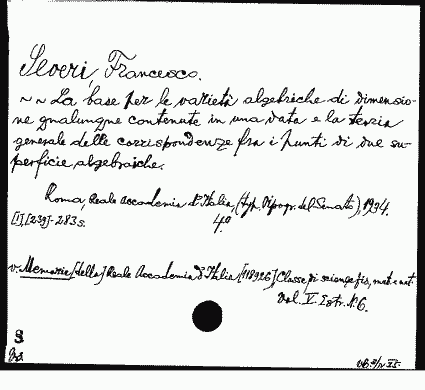 Severi, Francesco.
~ ~ La base per le varietà algebriche di dimensio-
ne qualunque contenute in una data e la teoria
generale delle corrispondenze fra i punti di due su-
perficie algebriche.
Roma, Reale Accademia d'Italia, (tip. Tipogr. del Senato), 1934.
[1], [239]-283 s. 4º
v. Memorie [della] Reale Accademia d'Italia, Classe di scienze fis., mat. e nat.
Vol. V. Estr. N. 6.